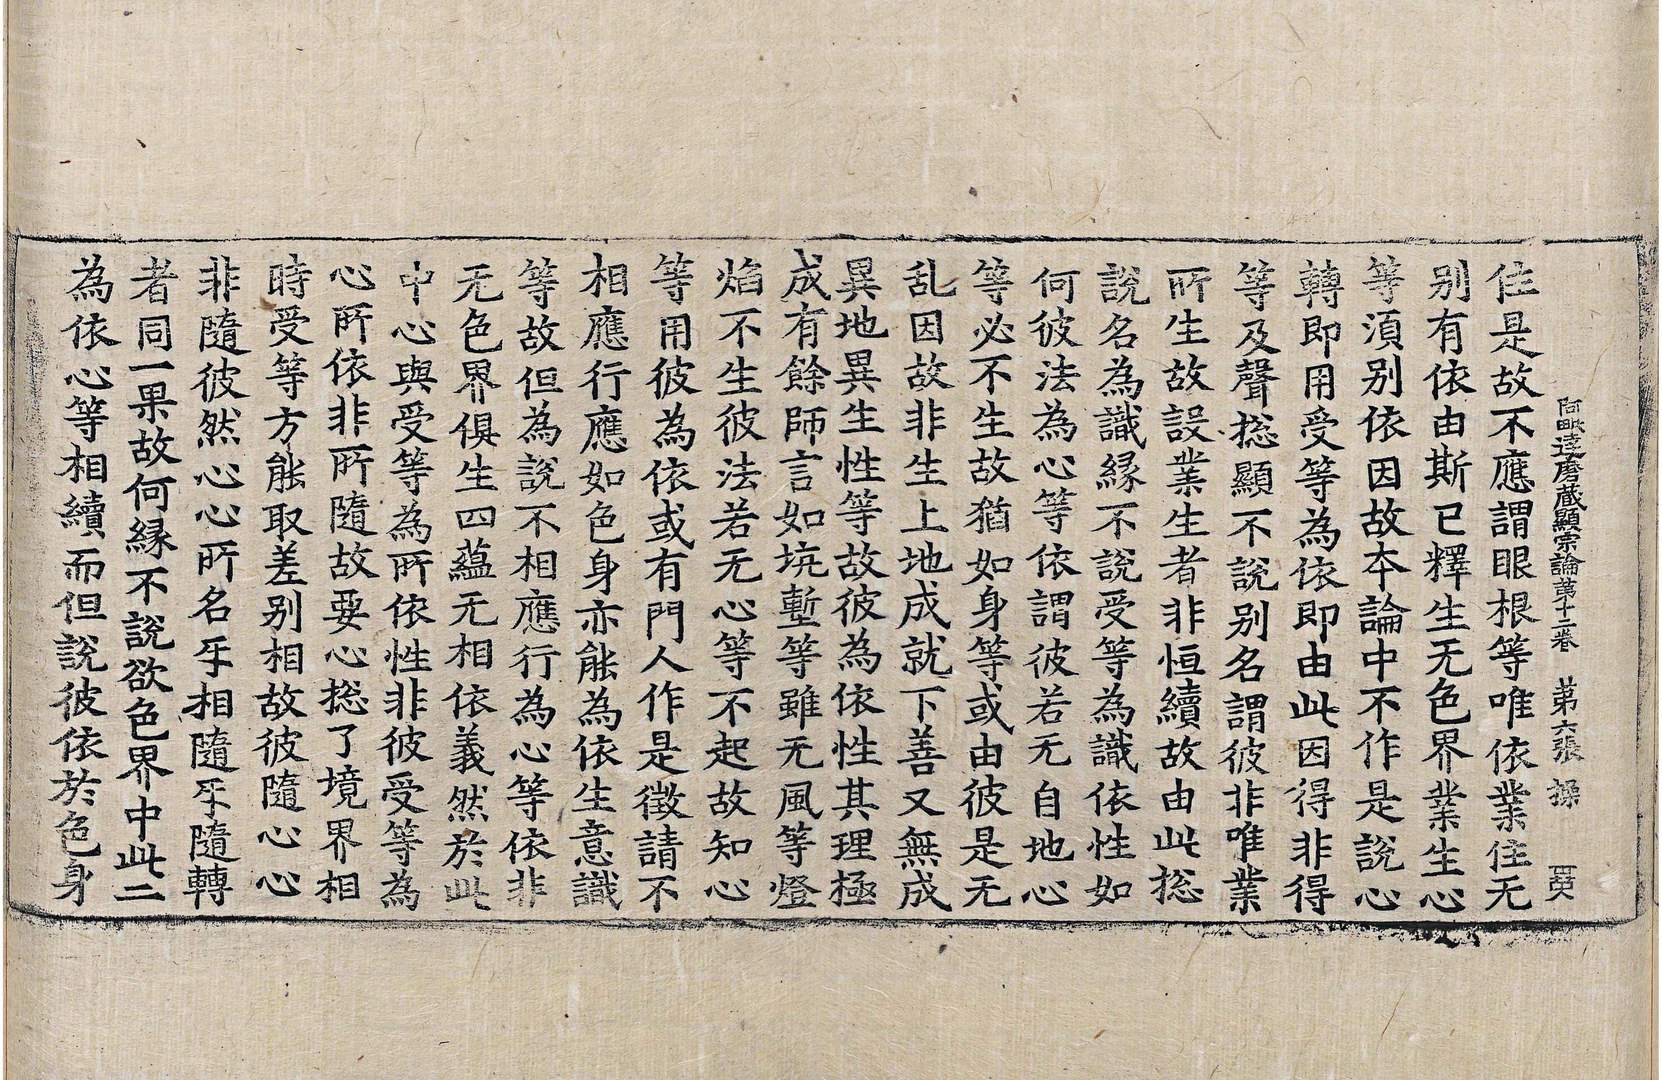 阿毗達磨藏顯宗論第十二卷 第六張 操
住是故不應謂眼根等唯依業住无
别有依由斯已釋生无色界業生心
等湏别依因故本論中不作是說心
轉即用受等為依即由此因得非得
等及聲捴顯不說别名謂彼非唯業
所生故設業生者非恒續故由此捴
說名為識縁不說受等為識依性如
何彼法為心等依謂彼若无自地心
等必不生故猶如身等或由彼是无
乱因故非生上地成就下善又無成
異地異生性等故彼為依性其理極
成有餘師言如坑塹等雖无風等燈
焰不生彼法若无心等不起故知心
等用彼為依或有門人作是徵請不
相應行應如色身亦能為依生意識
等故但為說不相應行為心等依非
无色界俱生四蘊无相依義然於此
中心與受等為所依性非彼受等為
心所依非所隨故要心捴了境界相
時受等方能取差别相故彼隨心心
非隨彼然心心所名㸦相隨㸦隨轉
者同一果故何縁不說欲色界中此二
為依心等相續而但說彼依於色身